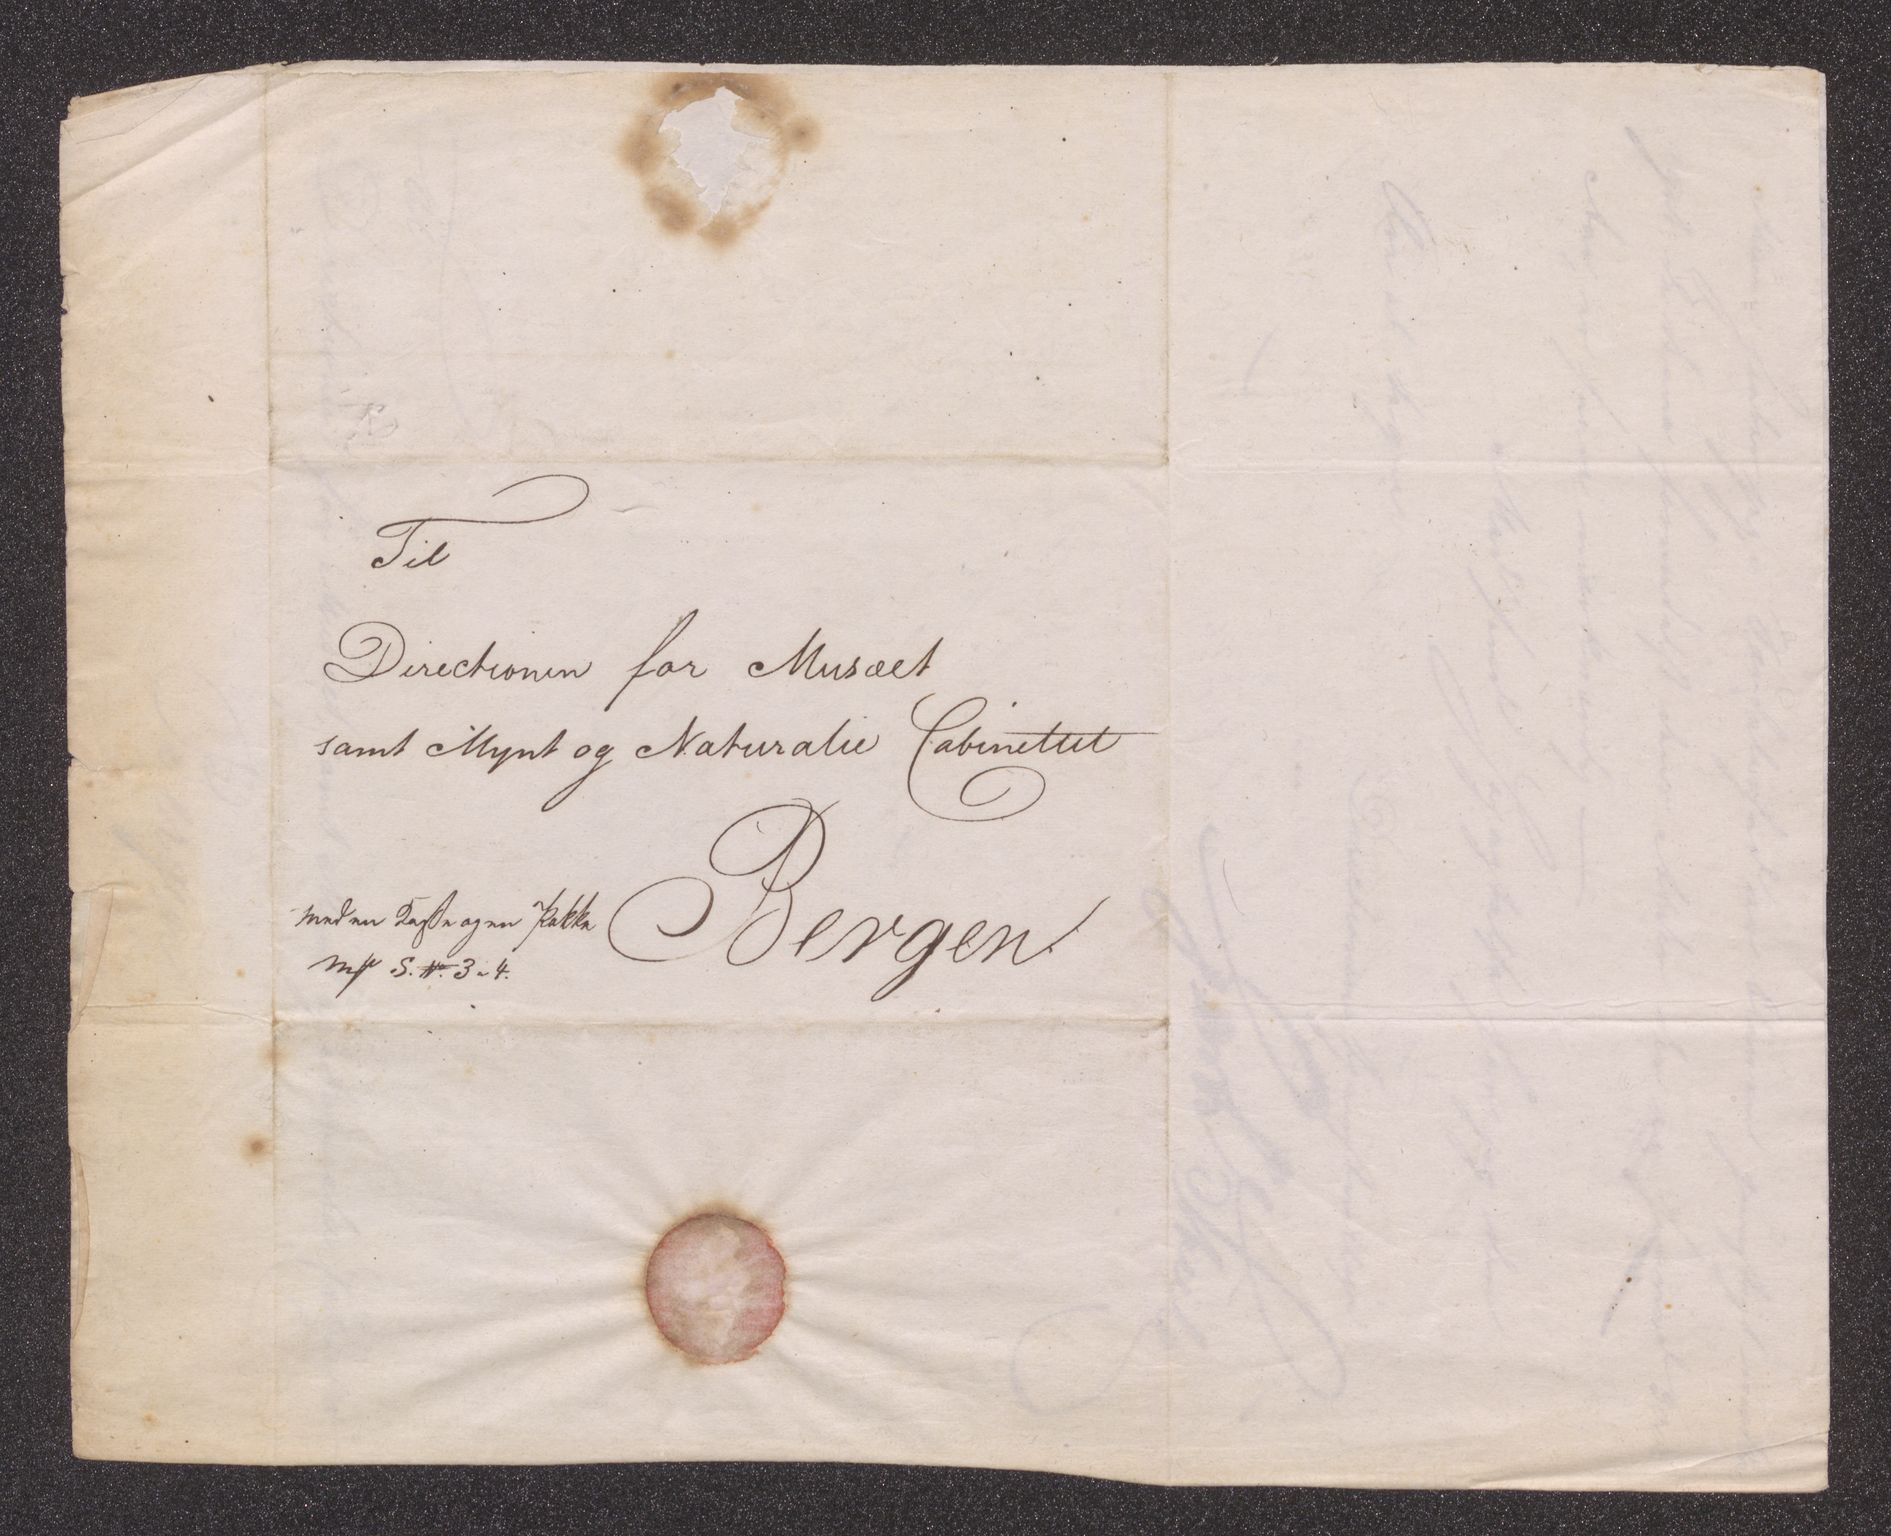 Til
Directionen for Musæet
samt Mynt og Naturalie Cabinettet
Bergen
med en Kasse og en Pakke
S. N. 3 - 4.